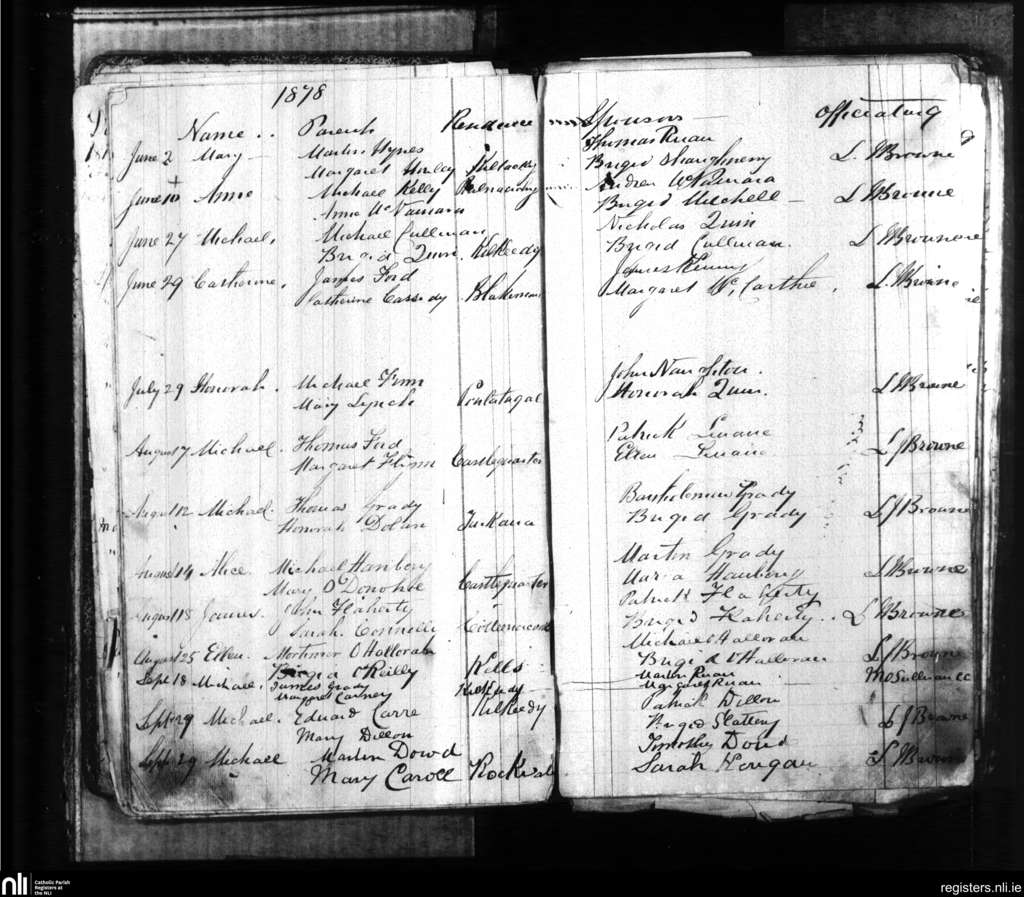 1878
Name .. Parents Residence Sponsors Officiating
June 2 Mary Martin Hynes Thomas Ruan
Margaret Brigid Shaughnessy L. J Browne
June 10 Anne Michael Kelly Andrew McNamara
Anne McNamara Brigid Mitchell L J Browne
June 27 Michael. Michael Cullinan Nicholas Quin
Brigid Quin Kilkeedy Brigid Cullinan. L J Browne
June 29 Catherine. James Ford James Kenny
Catherine Cassidy Margaret McCarthie. L. J Browne
July 29 Honorah. Michael Finn John Naughton.
Mary Lynch Honorah Quin. L J Browne
August 7 Michael. Thomas Ford Patrick Linane
Margaret Flinn Castlequarter Ellen Linane L J Browne
August 12 Michael. Thomas Grady Bartholemew Grady
Honorah Dolan Turkana Brigid Grady L J Browne
August 14 Alice. Michael Hanbery Martin Grady
Mary O'Donohoe Castlequarter Maria Hanbery L J Browne
August 18 John Flaherty Patrick Flaherty
Sarah Connelly Brigid Flaherty.. L J Browne
August 25 Ellen. Mortimer O'Halloran Michael Halloran
Brigid O'Reilly Kells Brigid O'Halloran L J Browne
Sept 18 Michael. James Grady Martin Ruan
Margaret Carney Kilkeedy Margaret Ruan M O Sullivan CC
Sept 29 Michael. Edward Carre Kilkeedy Patrick Dillon
Mary Dillon Brigid Slattery L J Browne
Sept 29 Michael Martin Dowd Timothy Dowd
Mary Caroll Rockvale Sarah Horgan L J Browne
nli Catholic Parish
Registers at
the NLI
registers.nli.ie